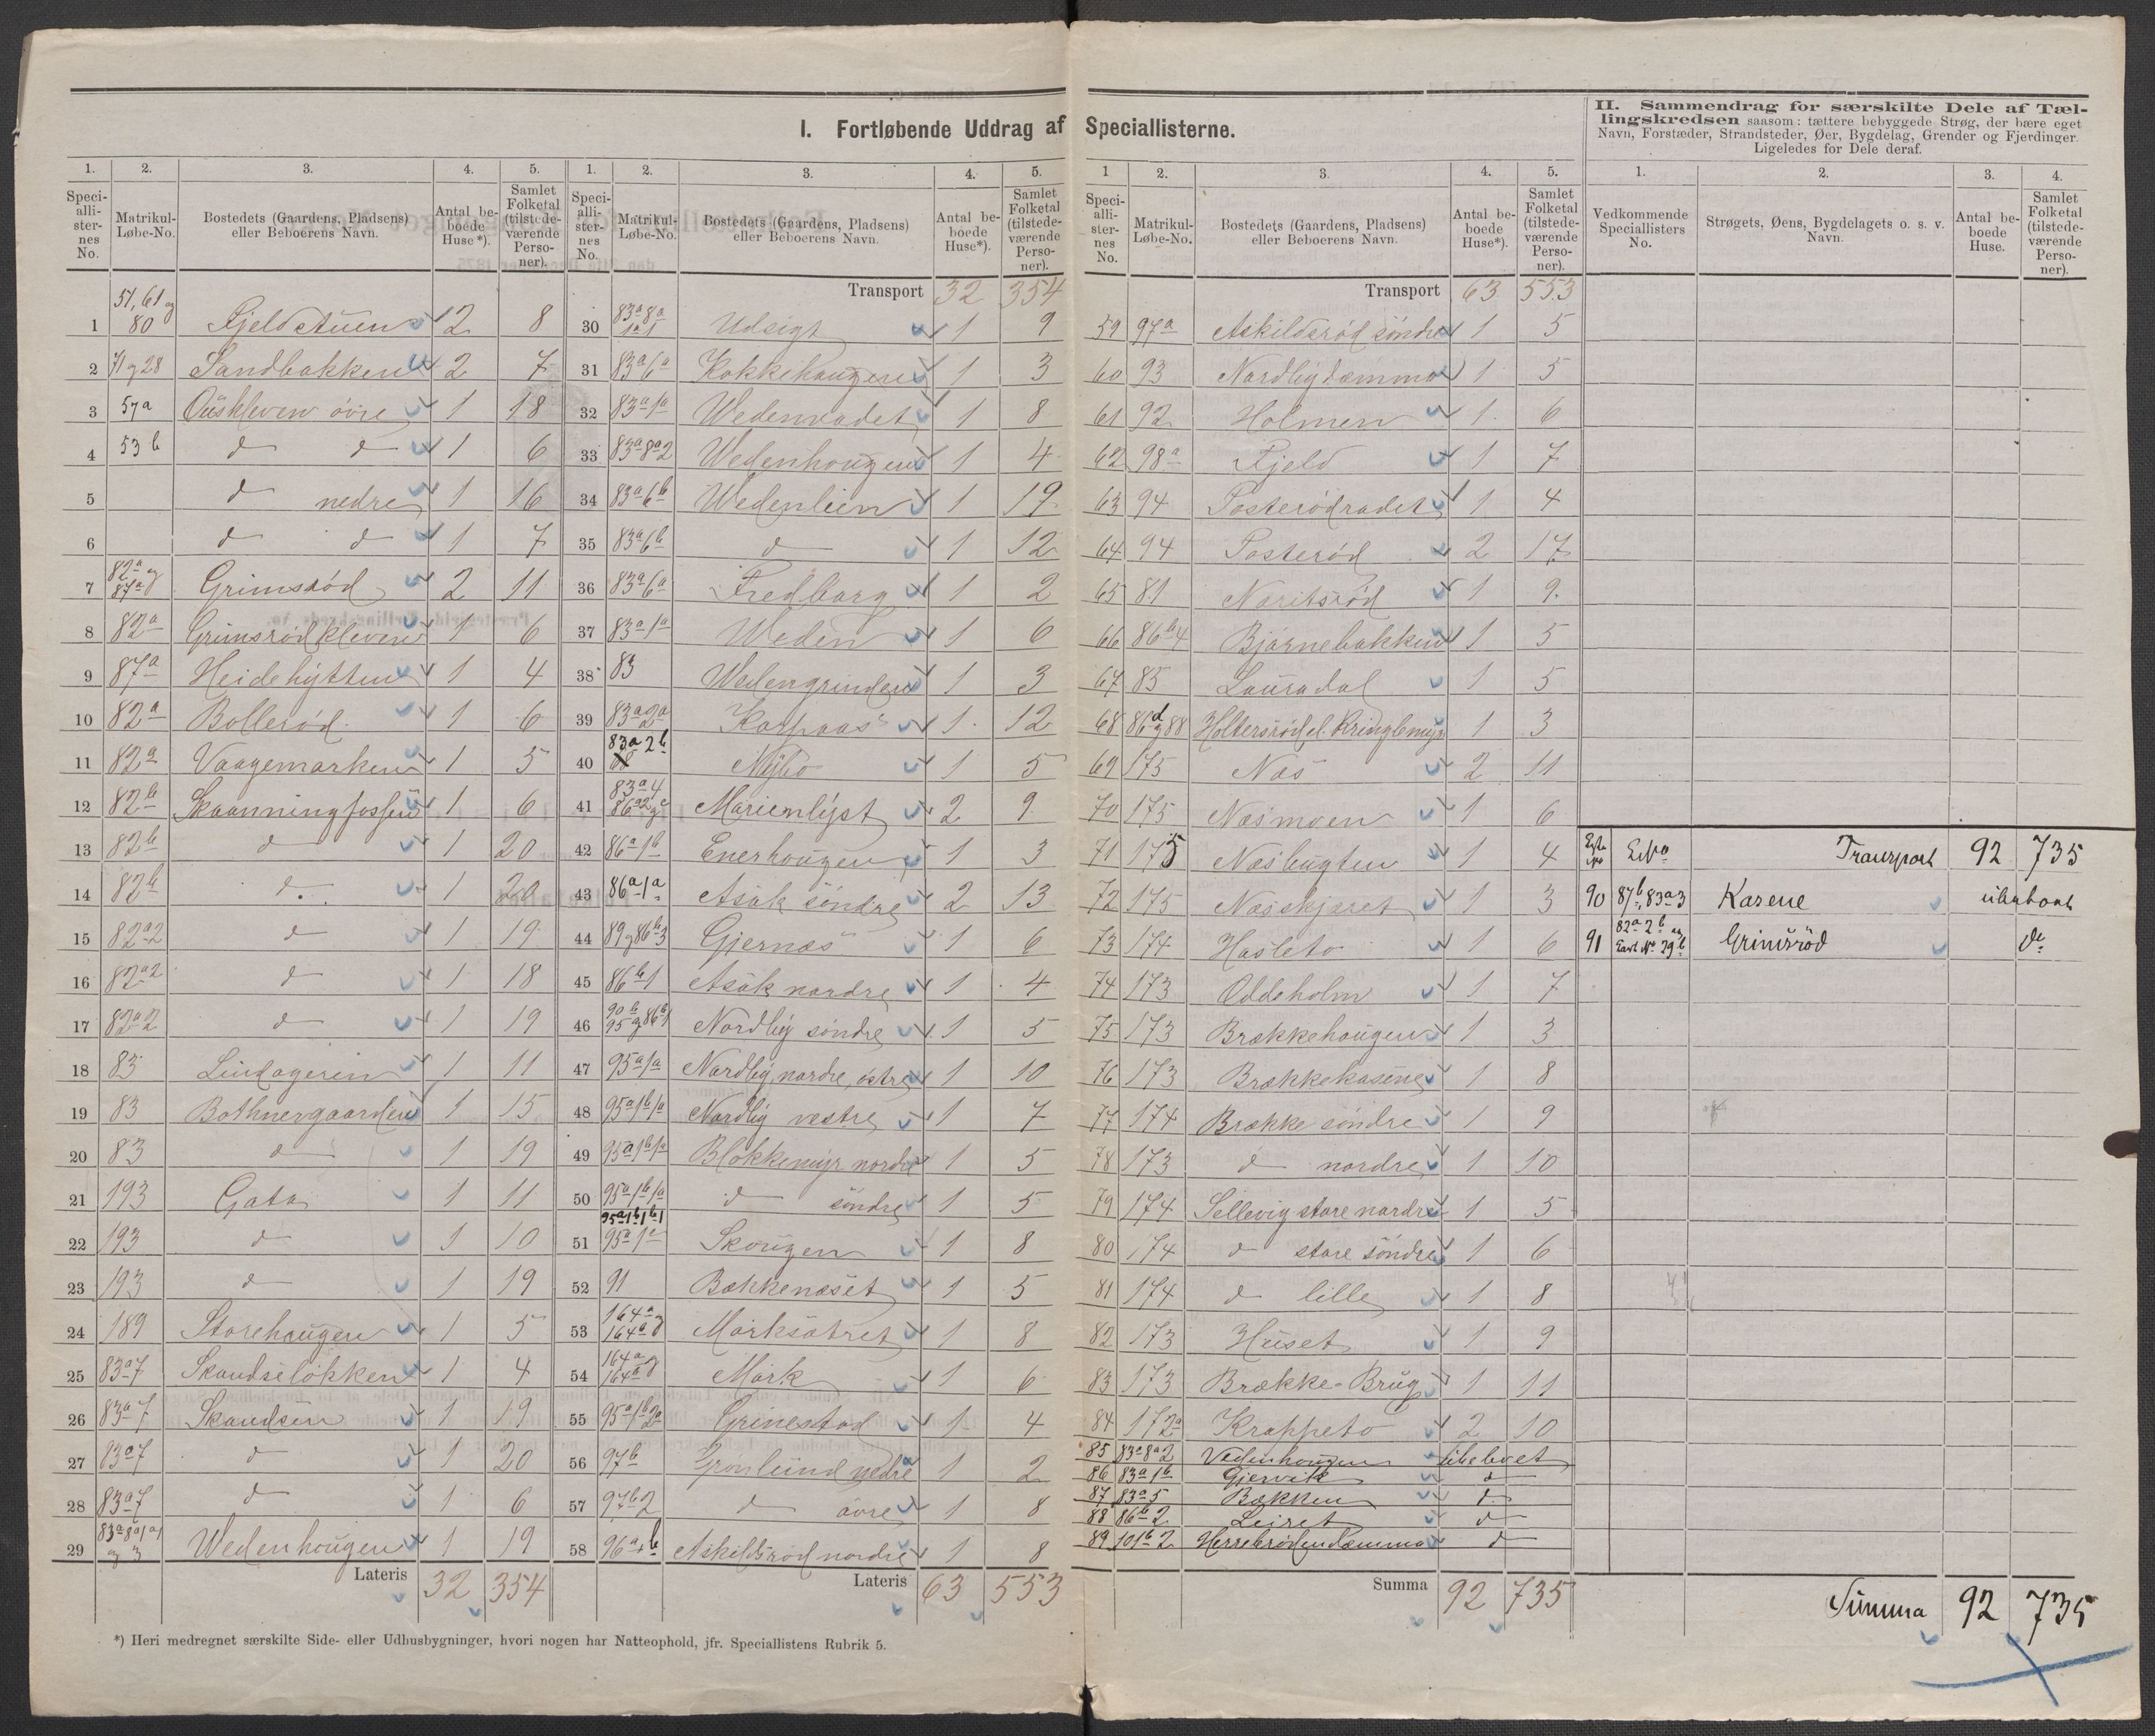 I. Fortløbende Uddrag af Speciallisterne.
1. 2. 3. 4. 5.
Speci-alli-ster-nes No. Matrikul-Løbe-No. Bostedets (Gaardens, Pladsens) eller Beboerens Navn. Antal be-boede Huse*). Samlet Folketal (tilstede-værende Perso-ner).
1 51, 61 og 80 Fjeldstuen 2 8
2 71 og 28 Sandbakken 2 7
3 57a Ouskleven övre 1 18
4 53b d d 1 6
5 d nedre 1 16
6 d d 1 7
7 82a og 87a Grimsrød 2 11
8 82a Grimsrødkleven 1 6
9 87a Heidehytten 1 4
10 82a Bollerød 1 6
11 82a Vaagemarken 1 5
12 82b Skaanningfossen 1 6
13 82b d 1 20
14 82b d 1 20
15 82a2 d 1 19
16 82a2 d 1 18
17 82a2 d 1 19
18 83 Lindageren 1 11
19 83 Bothnergaarden 1 15
20 83 d 1 19
21 193 Gata 1 11
22 193 d 1 10
23 193 d 1 19
24 189 Storehaugen 1 5
25 83a7 Skandselökken 1 4
26 83a7 Skandsen 1 19
27 83a7 d 1 20
28 83a7 d 1 6
29 83a8a1a1 og 3 Wedenhougen 1 19
Lateris 32 354
*) Heri medregnet særskilte Side- eller Udhusbygninger, hvori nogen har Natteophold, jfr. Speciallistens Rubrik 5.
1. 2. 3. 4. 5.
Speci-alli-ster-nes No. Matrikul-Løbe-No. Bostedets (Gaardens, Pladsens) eller Beboerens Navn. Antal be-boede Huse*). Samlet Folketal (tilstede-værende Perso-ner).
Transport 32 354
30 83a8a1a1 Udsigt 1 9
31 83a6a Kokkehaugen 1 3
32 83a1a Wedenradet 1 8
33 83a8a2 Wedenhougen 1 4
34 83a6b Wedenlien 1 19
35 83a6b d 1 12
36 83a6a Fredborg 1 2
37 83a1a Weden 1 6
38 83 Wedengrinden 1 3
39 83a2a Korpaas 1 12
40 83a2b Nybo 1 5
41 83a4 86a2 og c Marienlyst 2 9
42 86a1b Enerhougen 1 3
43 86a1a Asak söndre 2 13
44 89 og 86b3 Gjernæs 1 6
45 86b1 Asak nordre 1 4
46 90b 95 og 86b1 Nordby söndre 1 5
47 95a1a Nordby, nordre, östre 1 10
48 95a1b1a Nordby vestre 1 7
49 95a1b1a Blokkemyr nordre 1 5
50 95a1b1a d söndre 1 5
51 95a1b1b1 95a1c Skougen 1 8
52 91 Bækkenæset 1 5
53 164a og 164a Mörksætret 1 8
54 164a og 164a Mörk 1 6
55 95a1b2a Grinestad 1 4
56 97b Grönlund nedre 1 2
57 97b2 d övre 1 8
58 96a+b Askildsrød nordre 1 8
Lateris 63 553
1 2. 3. 4. 5.
Speci-alli-ster-nes No. Matrikul-Løbe-No. Bostedets (Gaardens, Pladsens) eller Beboerens Navn. Antal be-boede Huse*). Samlet Folketal (tilstede-værende Perso-ner).
Transport 63 553
59 97a Askildsrød söndre 1 5
60 93 Nordbydammen 1 5
61 92 Holmen 1 6
62 98a Fjeld 1 7
63 94 Posterødradet 1 4
64 94 Posterød 2 17
65 81 Noritsrød 1 9
66 86b4 Bjørnebakken 1 5
67 85 Lauradal 1 5
68 86d og 88 Holtersrød el. Kringlemyr 1 3
69 175 Næs 2 11
70 175 Næsmoen 1 6
71 175 Næsbugten 1 4
72 175 Næsskjæret 1 3
73 174 Hasleto 1 6
74 173 Oddeholm 1 7
75 173 Brækkehaugen 1 3
76 173 Brækkekasene 1 8
77 174 Brække söndre 1 9
78 173 d nordre 1 10
79 174 Sellevig store nordre 1 5
80 174 d store söndre 1 6
81 174 d lille 1 8
82 173 Huset 1 9
83 173 Brække-Brug 1 11
84 172a Krappeto 2 10
85 83a8a2 Vedenhougen ubeboet
86 83a1b Gjervik d
87 83a5 Bækken d
88 86b2 Leiret d
89 101b2 Herrebrødendammen d
Summa 92 735
II. Sammendrag for særskilte Dele af Tæl-
lingskredsen saasom: tættere bebyggede Strøg, der bære eget
Navn, Forstæder, Strandsteder, Øer, Bygdelag, Grender og Fjerdinger.
Ligeledes for Dele deraf.
1. 2. 3. 4.
Vedkommende Speciallisters No. Strøgets, Øens, Bygdelagets o. s. v. Navn. Antal be-boede Huse. Samlet Folketal (tilstede-værende Perso-ner).
Transport 92 735
90 87b, 83a3 Kasene ubeboet
91 82a2b og 29b Grimsröd do
Summa 92 735